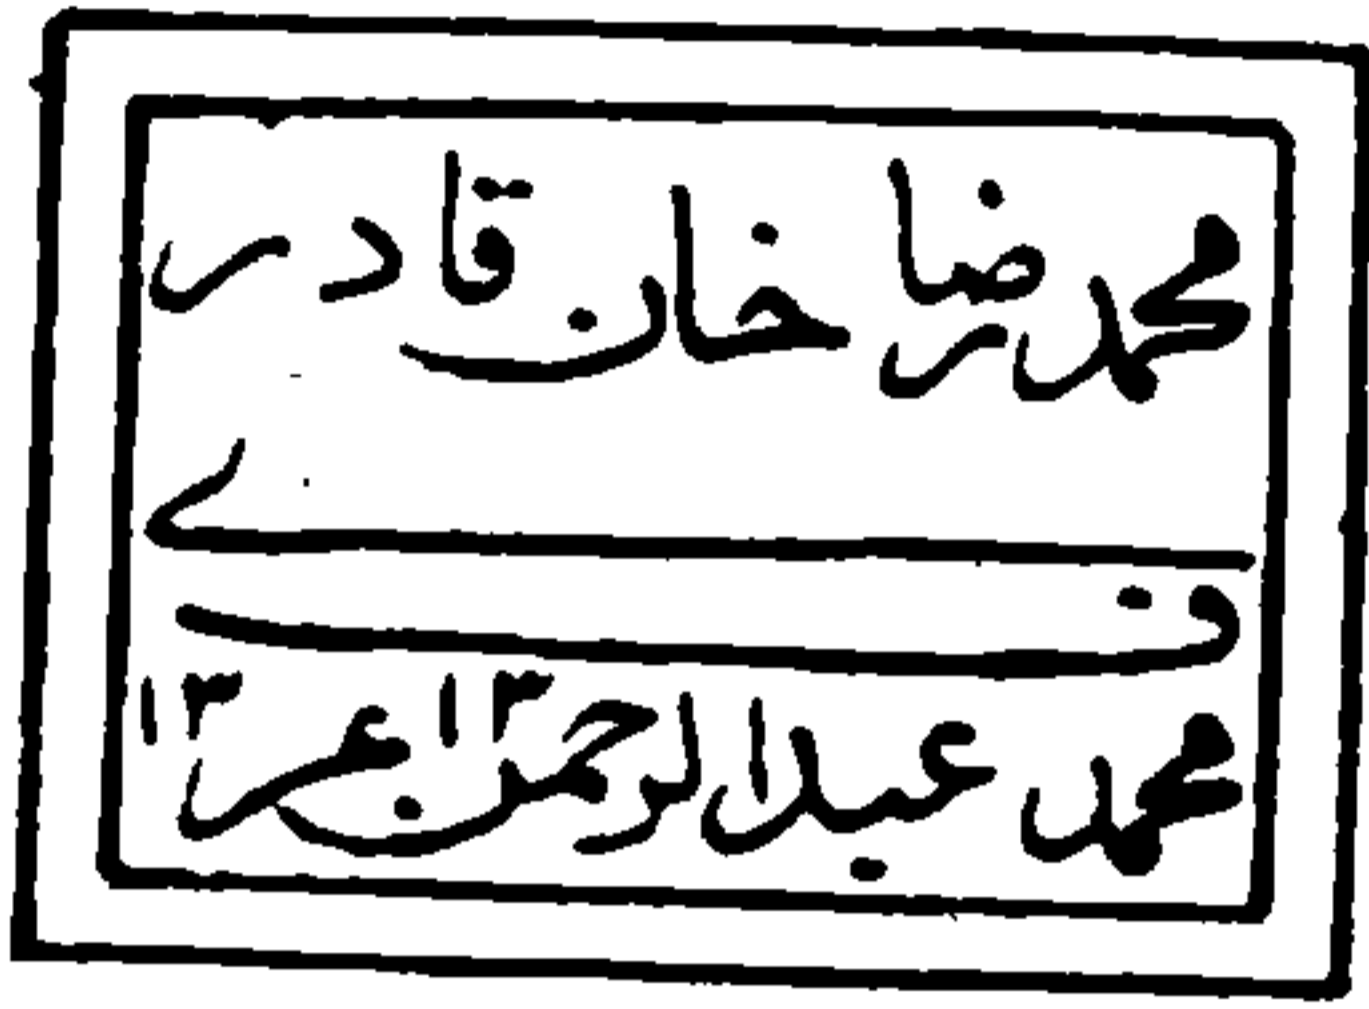 محمد رضا خان قادر
ے
ف
محمد عبدالرحمن ١٣ عر ١٣